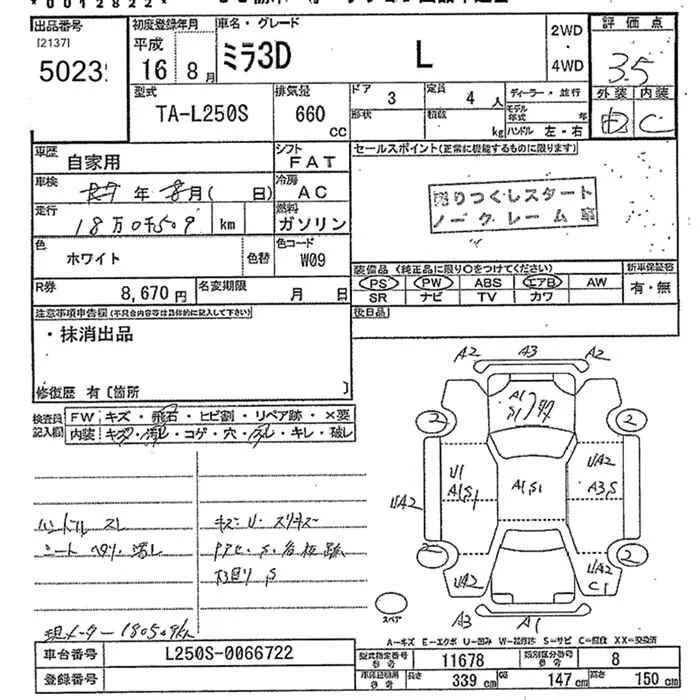 *0012822*
出品番号
[2137]
5023
初度登録年月
平成
16 8月
車名・グレード
ミラ3D L
2WD
・
4WD
評価点
3.5
外装 内装
D C
型式
TA-L250S
排気量
660 CC
ドア
3
形状
定員
4人
積数
kg
ディーラー・並行
モデル年式 年
ハンドル 左・右
車歴
自家用
シフト
FAT
車検
年 8月( 日)
冷房
AC
走行
18万0千509 km
燃料
ガソリン
色
ホワイト
色替
色コード
W09
R券
8,670円
名変期限
月 日
セールスポイント(正常に機能するものに限ります)
売りつくしスタート
ノークレーム車
装備品 (純正品に限り○をつけてください)
PS PW ABS エアB AW
SR ナビ TV カワ
新車保証書
有・無
後日品
注意事項申告欄(不具合内容等は具体的に記入して下さい)
・抹消出品
修復歴 有〔箇所 〕
検査員
記入欄
FW キズ・飛石・ヒビ割・リペア跡・×要
内装 キズ・汚れ・コゲ・穴・スレ・キレ・破レ
ハンドル スレ
シート ヘタリ・汚れ
キズ・U・スリキズ
下回り S
現メーター 180509km
A2 A3 A2
A1
S1
2 2
U1
A1,S1
A1,S1
UA2
A3,S
UA2
2 2
UA2
UA2
C1
スペア
A3 A1
A=キズ E=エクボ U=凹み W=補修跡 S=サビ C=腐食 XX=交換済
車台番号
L250S-0066722
登録番号
型式指定番号
参考
11678
類別区分番号
参考
8
車両諸元
参考
長さ
339 cm
幅
147 cm
高さ
150 cm